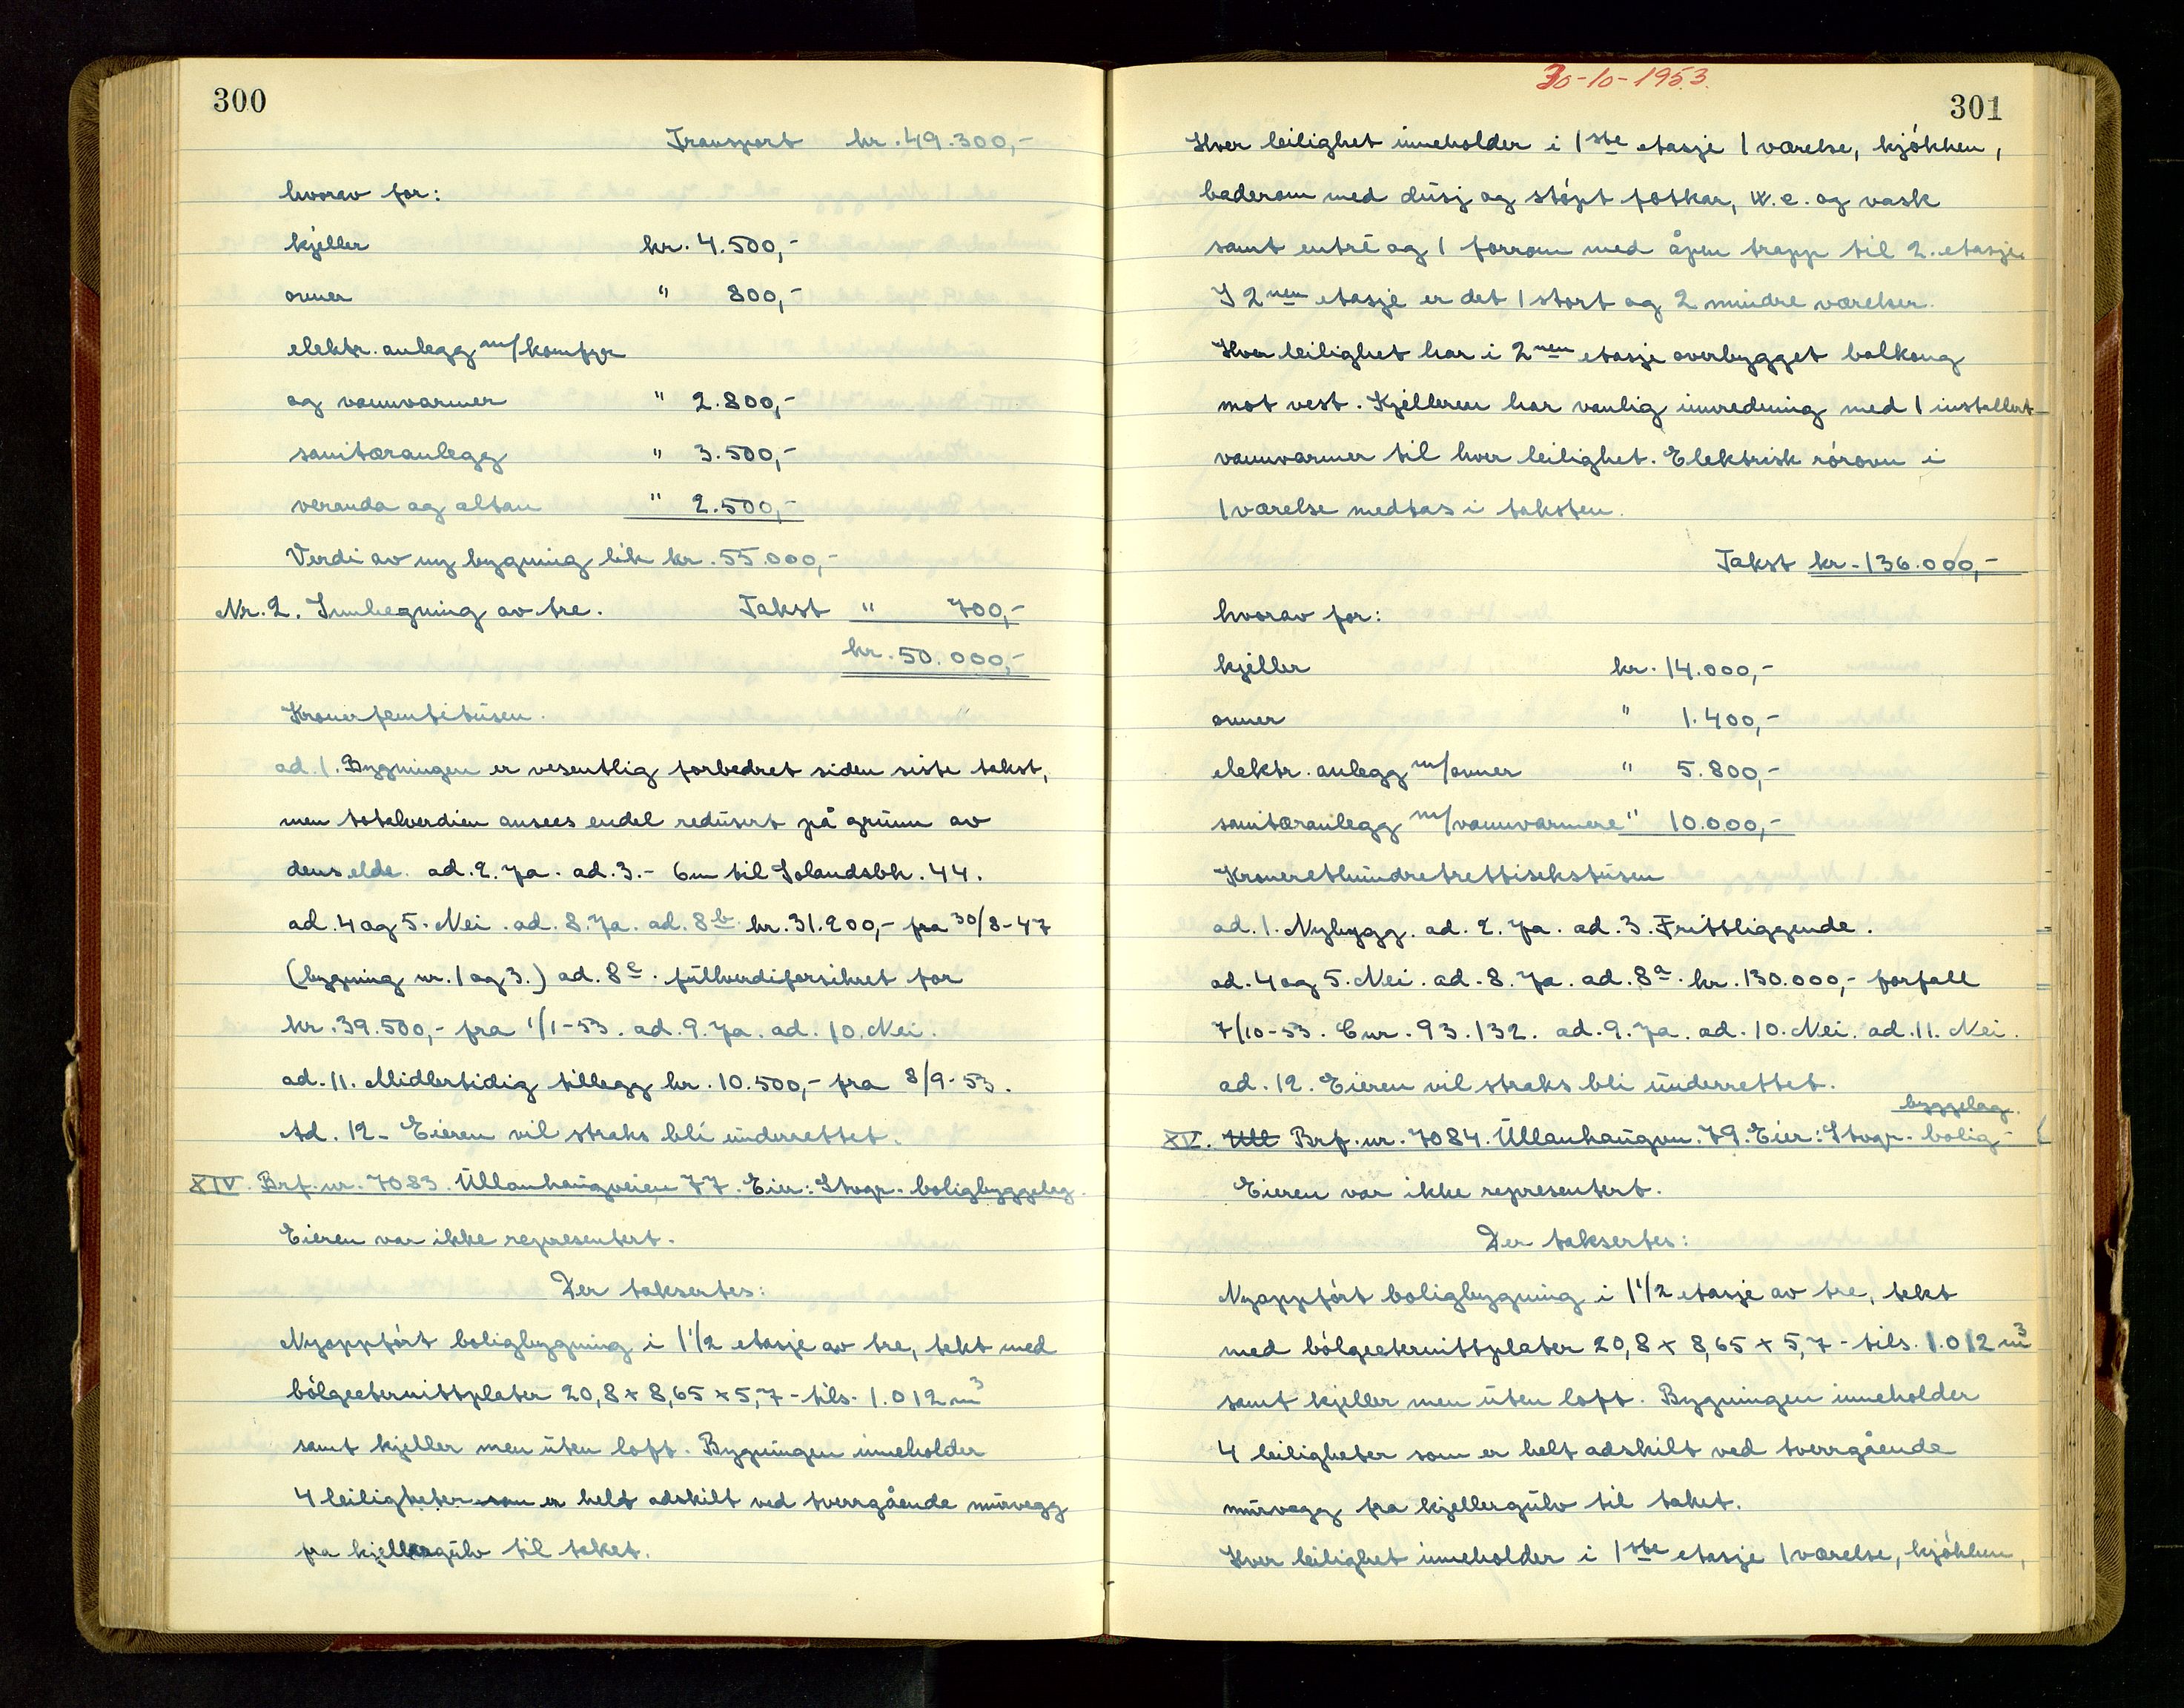 300
Transport kr. 49.300,-
hvorav for:
kjeller kr. 4.500,-
ovner " 800,-
elektr. anlegg m/komfyr
og vannvarmer " 2.800,-
sanitæranlegg " 3.500,-
veranda og altan " 2.500,-
Verdi av ny bygning lik kr. 55.000,-
Nr. 2. Innhegning av tre. Takst " 700,-
kr. 50.000,-
Kronerfemtitusen.
ad. 1. Bygningen er vesentlig forbedret siden siste takst,
men totalverdien ansees endel redusert på grunn av
dens elde. ad. 2. Ja. ad. 3. - 6 m til Solandsbk. 44.
ad. 4 og 5. Nei. ad. 8. Ja. ad. 8b. kr. 31.200,- fra 30/8-47
(bygning nr. 1 og 3.) ad. 8c. fullverdiforsikret for
kr. 39.500,- fra 1/1-53. ad. 9. Ja. ad. 10. Nei.
ad. 11. Midlertidig tillegg kr. 10.500,- fra 8/9-53.
Ad. 12- Eieren vil straks bli underrettet.
XIV. Brf. nr. 7083. Ullanhaugveien 77. Eier: Stvgr. boligbyggelag.
Eieren var ikke representert.
Der taksertes:
Nyoppført boligbygning i 1 1/2 etasje av tre, tekt med
bølgeeternittplater 20,8 x 8,65 x 5,7 - tils. 1.012 m3
samt kjeller men uten loft. Bygningen inneholder
4 leiligheter som er helt adskilt ved tverrgående murvegg
fra kjellergulv til taket.
30-10-1953.
301
Hver leilighet inneholder i 1ste etasje 1 værelse, kjøkken,
baderom med dusj og støpt fotkar, w.c. og vask
samt entré og 1 forrom med åpen trapp til 2. etasje.
I 2nen etasje er det 1 stort og 2 mindre værelser.
Hver leilighet har i 2nen etasje overbygget balkong
mot vest. Kjelleren har vanlig innredning med 1 installert
vannvarmer til hver leilighet. Elektrisk rørovn i
1 værelse medtas i taksten.
Takst kr. 136.000,-
hvorav for:
kjeller kr. 14.000,-
ovner " 1.400,-
elektr. anlegg m/ovner " 5.800,-
sanitæranlegg m/vannvarmere " 10.000,-
Kroneretthundretrettisekstusen
ad. 1. Nybygg. ad. 2. Ja. ad. 3. Frittliggende.
ad. 4 og 5. Nei. ad. 8. Ja. ad. 8a. kr. 130.000,- forfall
7/10-53. Enr. 93.132. ad. 9. Ja. ad. 10. Nei. ad. 11. Nei.
ad. 12. Eieren vil straks bli underrettet.
byggelag.
XV. Ull Brf. nr. 7084. Ullanhaugvn. 79. Eier: Stvgr. bolig-
Eieren var ikke representert.
Der taksertes:
Nyoppført boligbygning i 1 1/2 etasje av tre, tekt
med bølgeeternittplater 20,8 x 8,65 x 5,7 - tils. 1.012 m3
samt kjeller men uten loft. Bygningen inneholder
4 leiligheter som er helt adskilt ved tverrgående
murvegg fra kjellergulv til taket.
Hver leilighet inneholder i 1ste etasje 1 værelse, kjøkken,